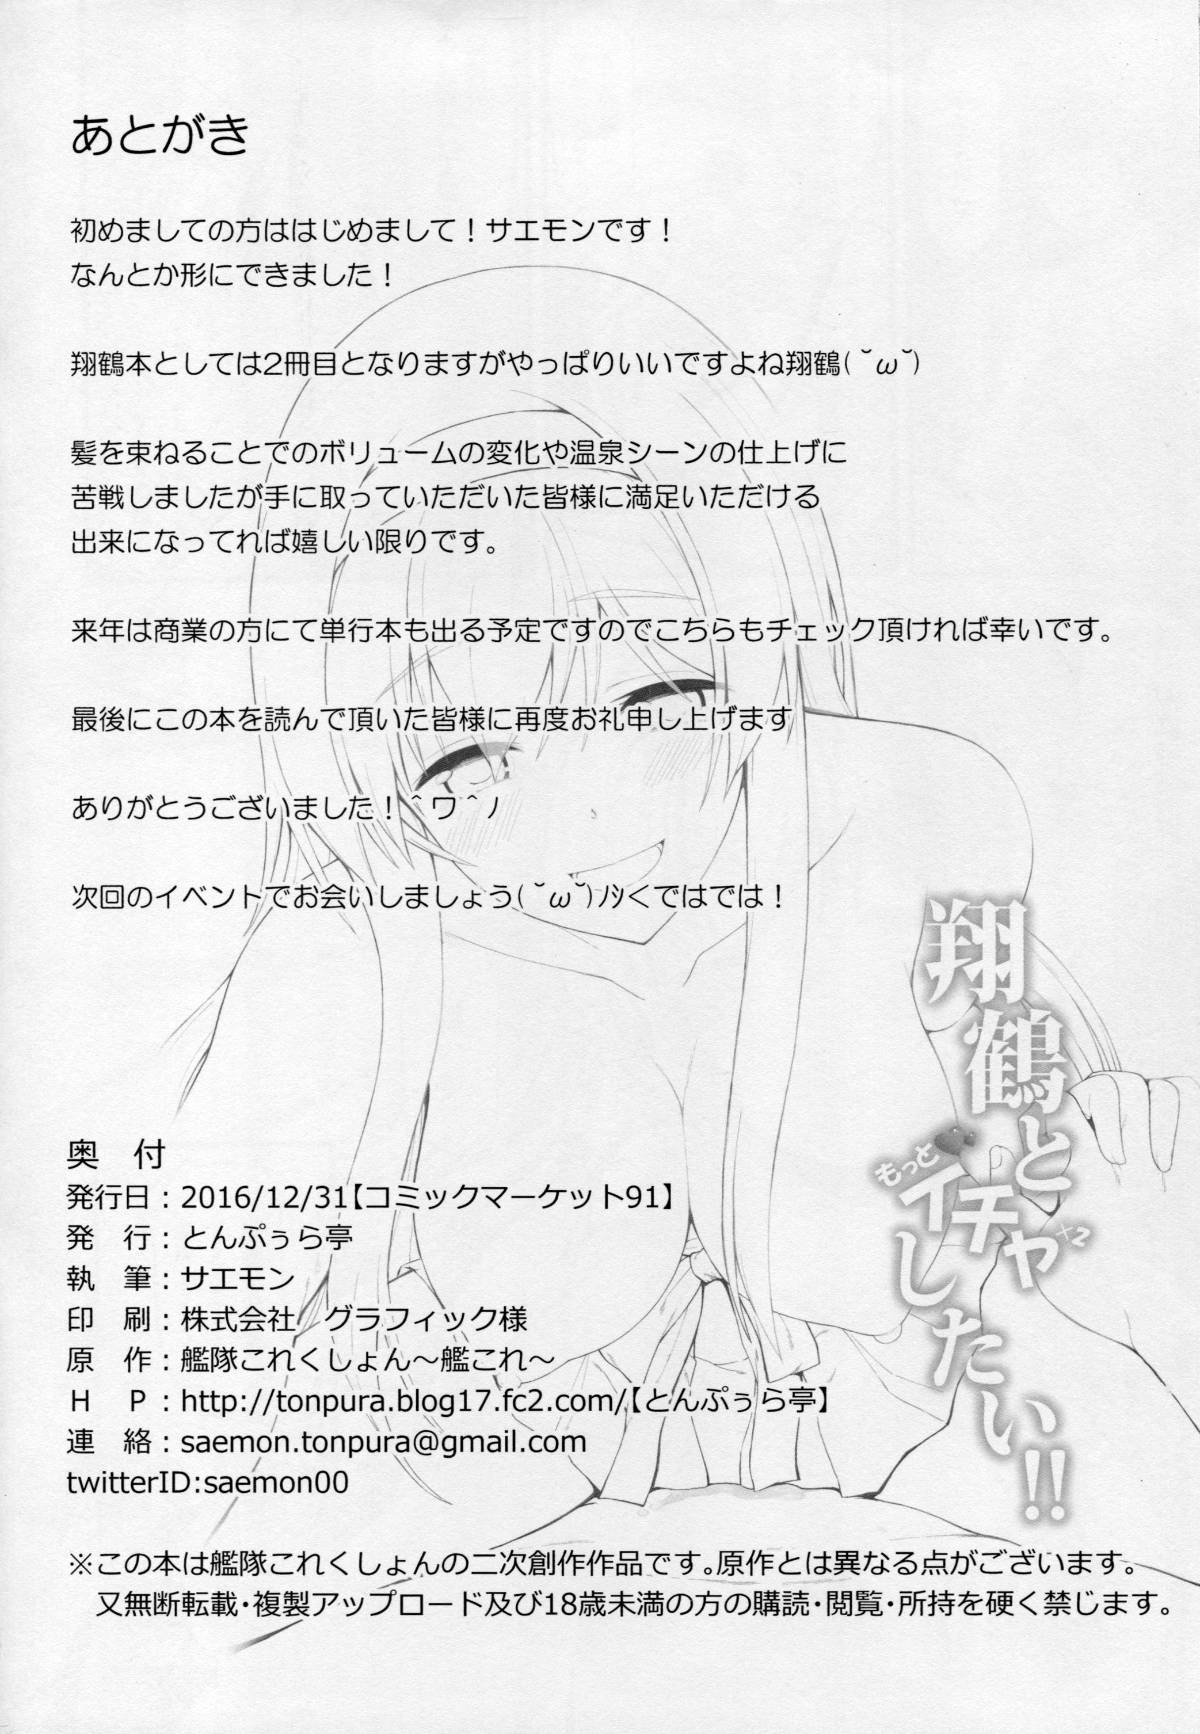 あとがき
初めましての方ははじめまして！サエモンです！
なんとか形にできました！
翔鶴本としては2冊目となりますがやっぱりいいですよね翔鶴(˘ω˘)
髪を束ねることでのボリュームの変化や温泉シーンの仕上げに
苦戦しましたが手に取っていただいた皆様に満足いただける
出来になってれば嬉しい限りです。
来年は商業の方にて単行本も出る予定ですのでこちらもチェック頂ければ幸いです。
最後にこの本を読んで頂いた皆様に再度お礼申し上げます
ありがとうございました！＾ワ＾ノ
次回のイベントでお会いしましょう(˘ω˘)ﾉｼくではでは！
翔鶴と
もっと
イチャ×2
したい!!
奥　付
発行日：2016/12/31【コミックマーケット91】
発　行：とんぷぅら亭
執　筆：サエモン
印　刷：株式会社　グラフィック様
原　作：艦隊これくしょん～艦これ～
Ｈ　Ｐ：http://tonpura.blog17.fc2.com/【とんぷぅら亭】
連　絡：saemon.tonpura@gmail.com
twitterID:saemon00
※この本は艦隊これくしょんの二次創作作品です。原作とは異なる点がございます。
又無断転載･複製アップロード及び18歳未満の方の購読･閲覧･所持を硬く禁じます。